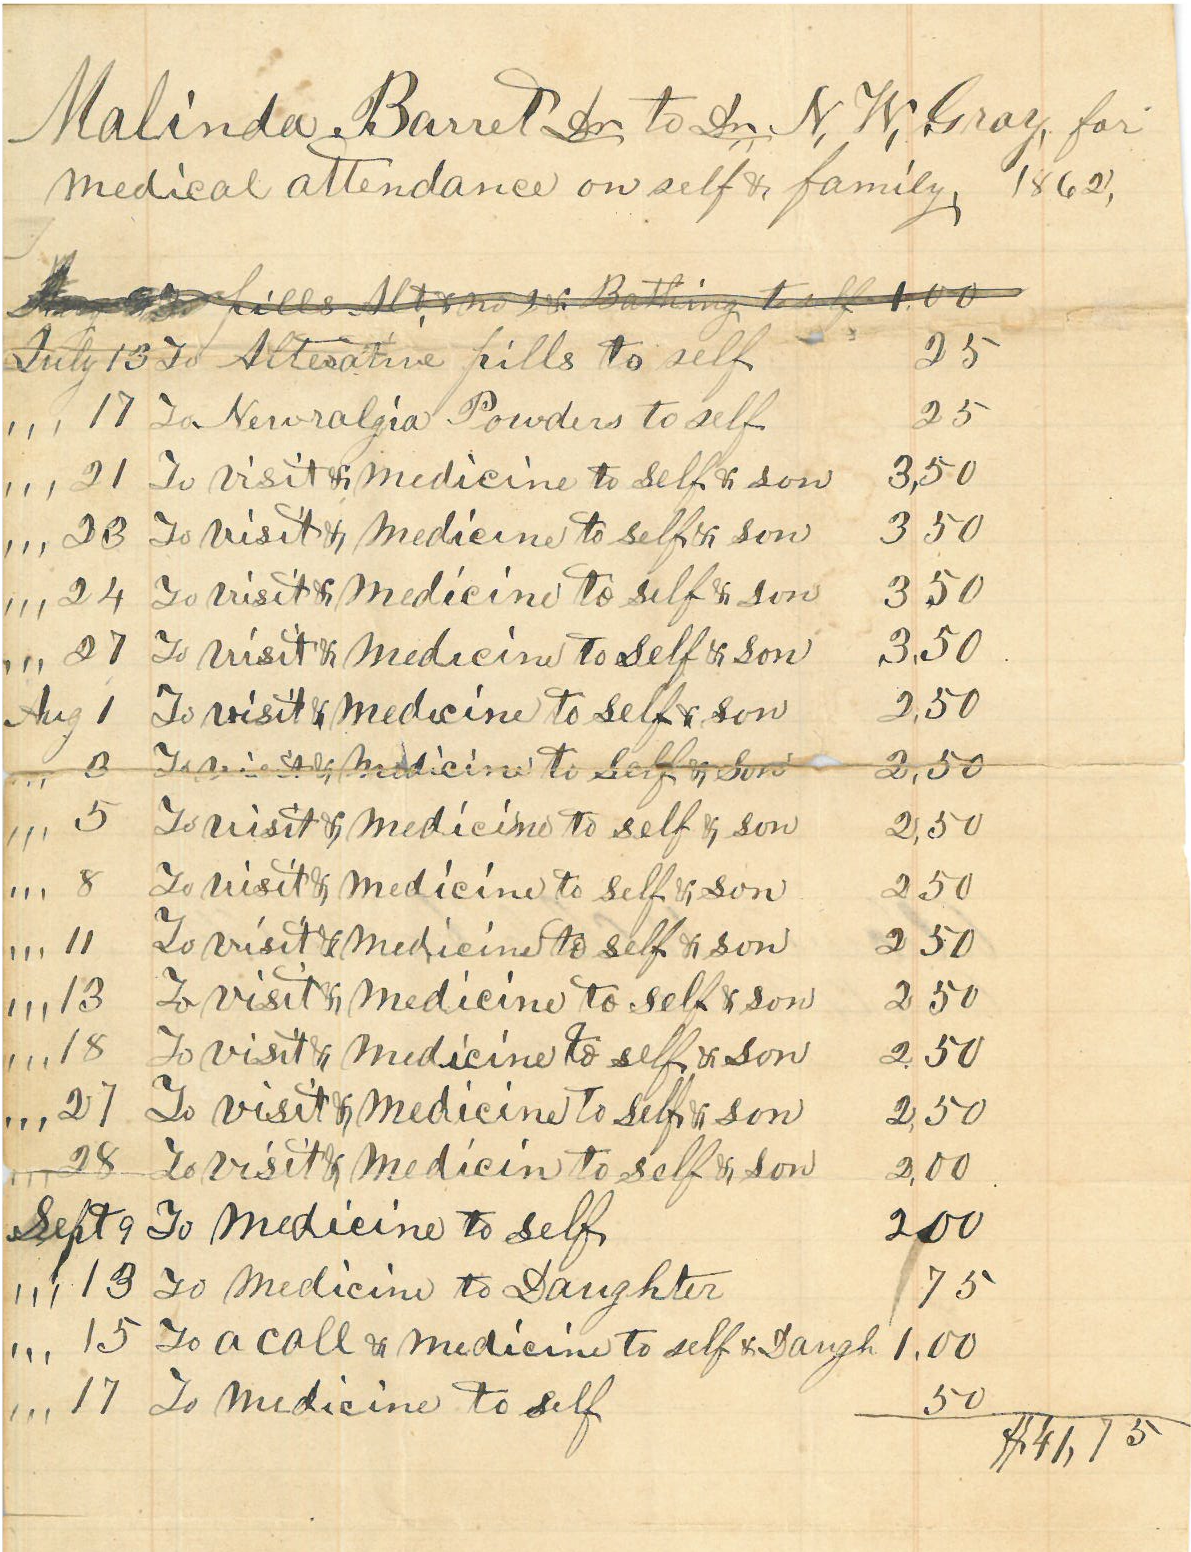 Malinda Barret Dr to Dr. N. W. Gray, for
medical attendance on self & family, 1862,
pills Alt, & no 2 & Bathing to self 1.00
July 13 To Alterative pills to self 25
,,, 17 To Newralgia Powders to self 25
,,, 21 To visit & Medicine to self & son 3,50
,,, 23 To visit & Medicine to self & son 3 50
,,, 24 To visit & Medicine to self & son 3 50
,,, 27 To visit & Medicine to self & son 3.50
Aug 1 To visit & Medicine to self & son 2,50
,,, 3 To visit & Medicine to self & son 2,50
,,, 5 To visit & Medicine to self & son 2,50
,,, 8 To visit & Medicine to self & son 2 50
,,, 11 To visit & Medicine to self & son 2 50
,,, 13 To visit & Medicine to self & son 2 50
,,, 18 To visit & Medicine to self & son 2.50
,,, 27 To visit & Medicine to self & son 2,50
,,, 28 To visit & Medicin to self & son 2,00
Sept 9 To Medicine to self 2,00
,,, 13 To Medicine to Daughter 75
,,, 15 To a call & Medicine to self & Daugh 1.00
,,, 17 To Medicine to self 50
$41,75